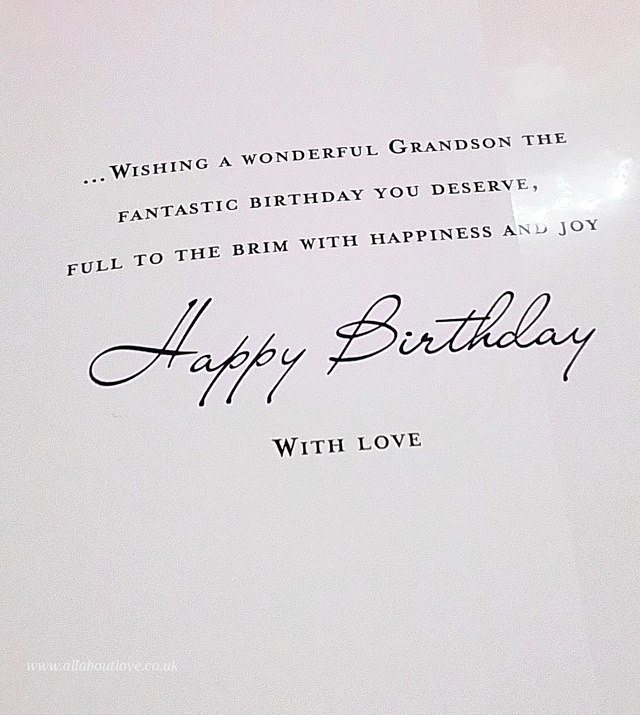 ...Wishing a wonderful Grandson the
fantastic birthday you deserve,
full to the brim with happiness and joy
Happy Birthday
With love
www.allaboutlove.co.uk